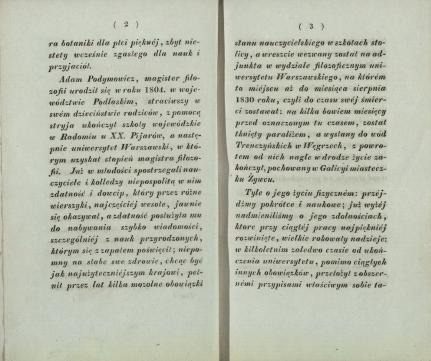 ( 2 )
ra botaniki dla płci piękwéj, zbyt nie-
stety wcześnie zgasłego dla nauk i
przyjaciół.
Adam Podymowicz, magister filo-
zofii urodził się w roku 1804. w woje-
wództwie Podlaskim, straciwszy w
swém dzieciństwie rodziców, z pomocą
stryja ukończył szkoły wojewódzkie
w Radomiu u XX. Pijarów, a nastę-
pnie uniwersytet Warszawski, w któ-
rym uzyskał stopień magistra filozo-
fii. Już w młodości spostrzegali nau-
czyciele i kolledzy niepospolitą w nim
zdatność i dowcip, który przez różne
wierszyki, najczęściej wesołe, jawnie
się okazywał, a zdatność posłużyła mu
do nabywania szybko wiadomości,
szczególniéj z nauk przyrodzonych,
którym się z zapałem poświęcił; niepo-
mny na słabe swe zdrowie, chcąc być
jak najużyteczniejszym krajowi, peł-
nił przez lat kilka mozolne obowiązki
( 3 )
stanu nauczycielskiego w szkołach sto-
licy, a wreszcie wezwany został na ad-
junkta w wydziale filozoficznym uni-
wersytetu Warszawskiego, na którém
to miejscu aż do miesiąca sierpnia
1830 roku, czyli do czasu swéj śmier-
ci zostawał: na kilka bowiem miesięcy
przed oznaczonym tu czasem, został
tknięty paraliżem, a wysłany do wód
Trenczyńskich w Węgrzech, z powro-
tem od nich nagle w drodze życie za-
kończył, pochowany w Galicyi miastecz-
ku Żywcu.
Tyle o jego życiu fizyczném: przéj-
dźmy pokrótce i naukowe; już wyżéj
nadmieniliśmy o jego zdolnościach,
które przy ciągłéj pracy najpiękniéj
rozwinięte, wielkie rokowały nadzieje;
w kilkoletnim zaledwo czasie od ukoń-
czenia uniwersytetu, pomimo ciągłych
innych obowiązków, przełożył z obszer-
némi przypisami właściwym sobie ta-